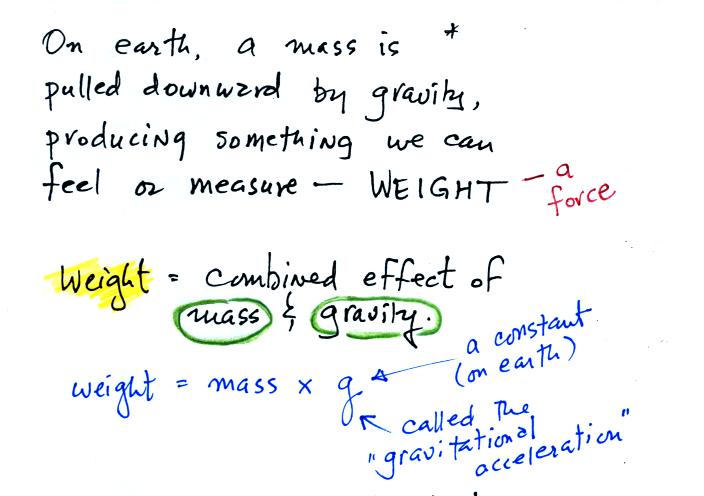 On earth, a mass is *
pulled downward by gravity,
producing something we can
feel or measure — WEIGHT — a
force
Weight = combined effect of
mass & gravity.
weight = mass x g
a constant
(on earth)
called the
"gravitational
acceleration"